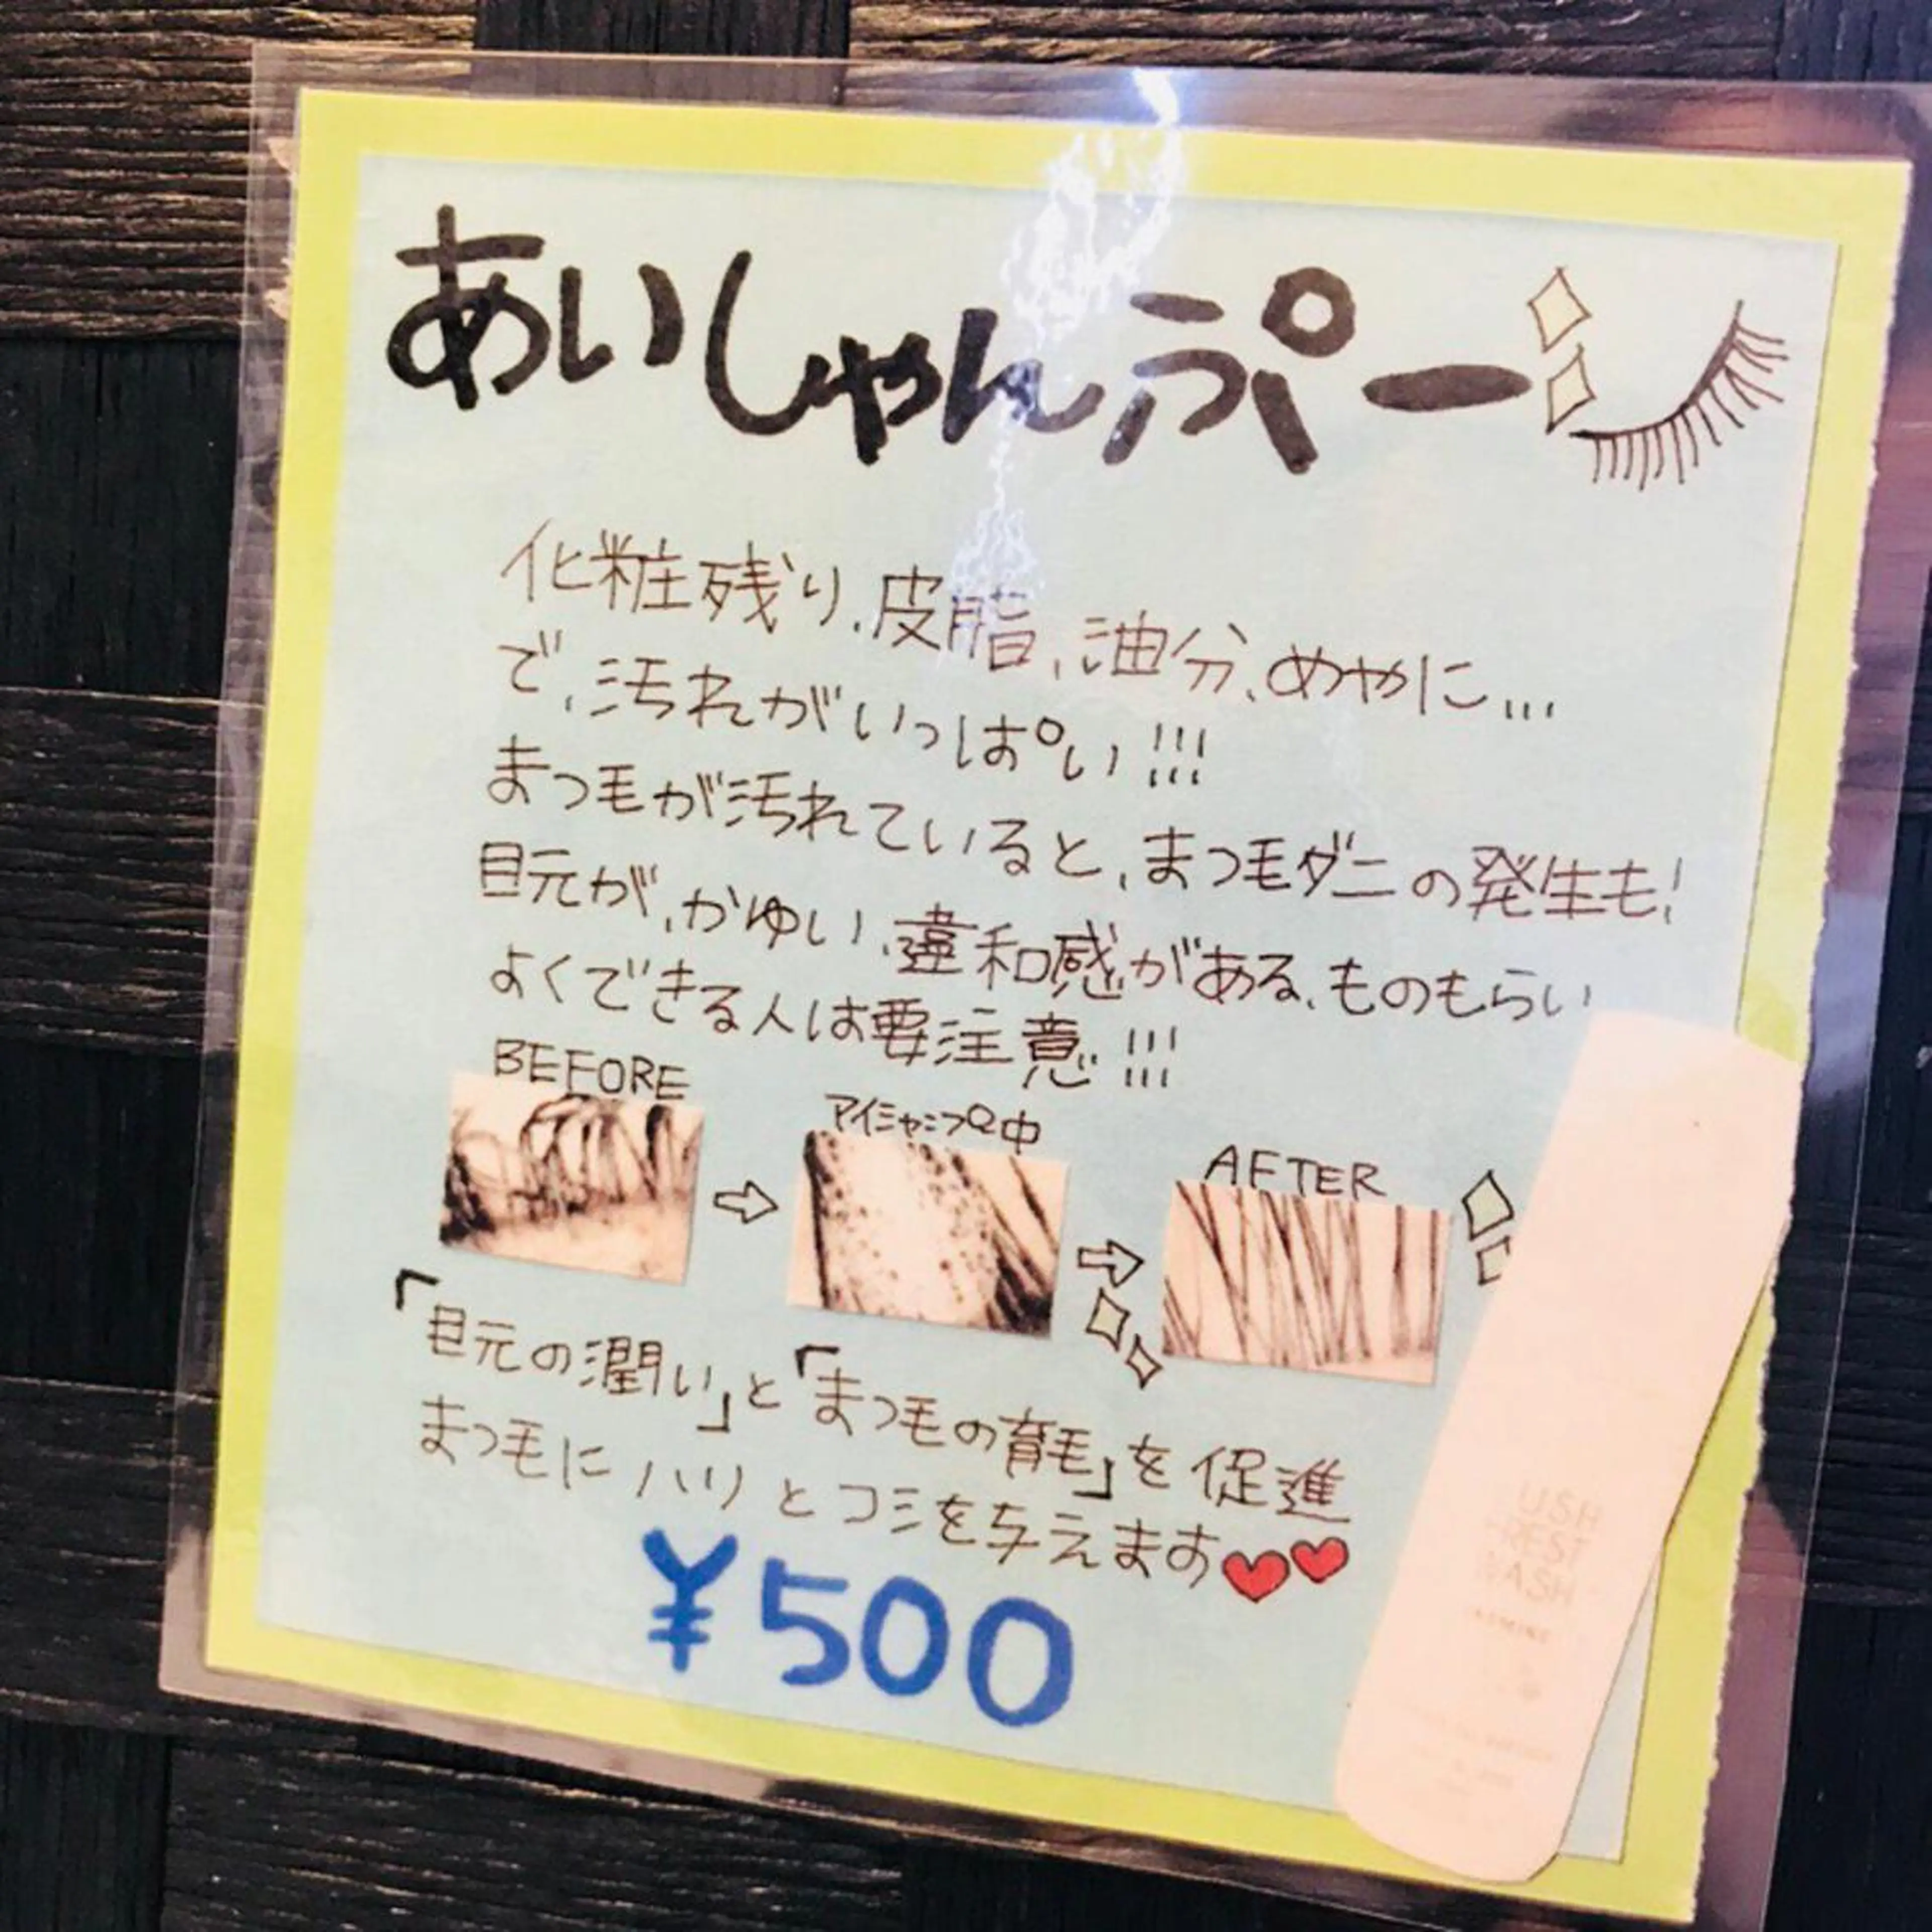 あいしゃんぷー
化粧残り、皮脂、油分、めやに...
で、汚れがいっぱい!!!
まつ毛が汚れていると、まつ毛ダニの発生も!
目元が、かゆい、違和感がある、ものもらい
よくできる人は要注意!!!
BEFORE
アイシャンプー中
AFTER
「目元の潤い」と「まつ毛の育毛」を促進
まつ毛にハリとコシを与えます
¥500
WASH